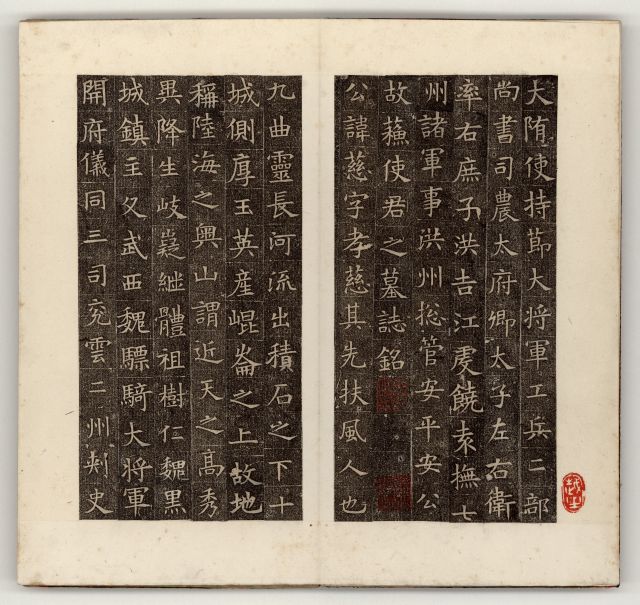 大隋使持節大將軍工兵二部
尚書司農太府卿太子左右衛
率右庶子洪吉江虔饒袁撫七
州諸軍事洪州捴管安平安公
故蘓使君之墓誌銘
公諱慈字孝慈其先扶風人也
九曲靈長河流出積石之下十
城側厚玉英産崐崙之上故地
稱陸海之奧山謂近天之高秀
異降生岐嶷継體祖樹仁魏黑
城鎮主父武西魏驃騎大將軍
開府儀同三司兗雲二州刾史